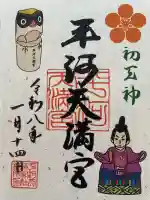 初天神
平河天満宮
令和八年
一月十四日